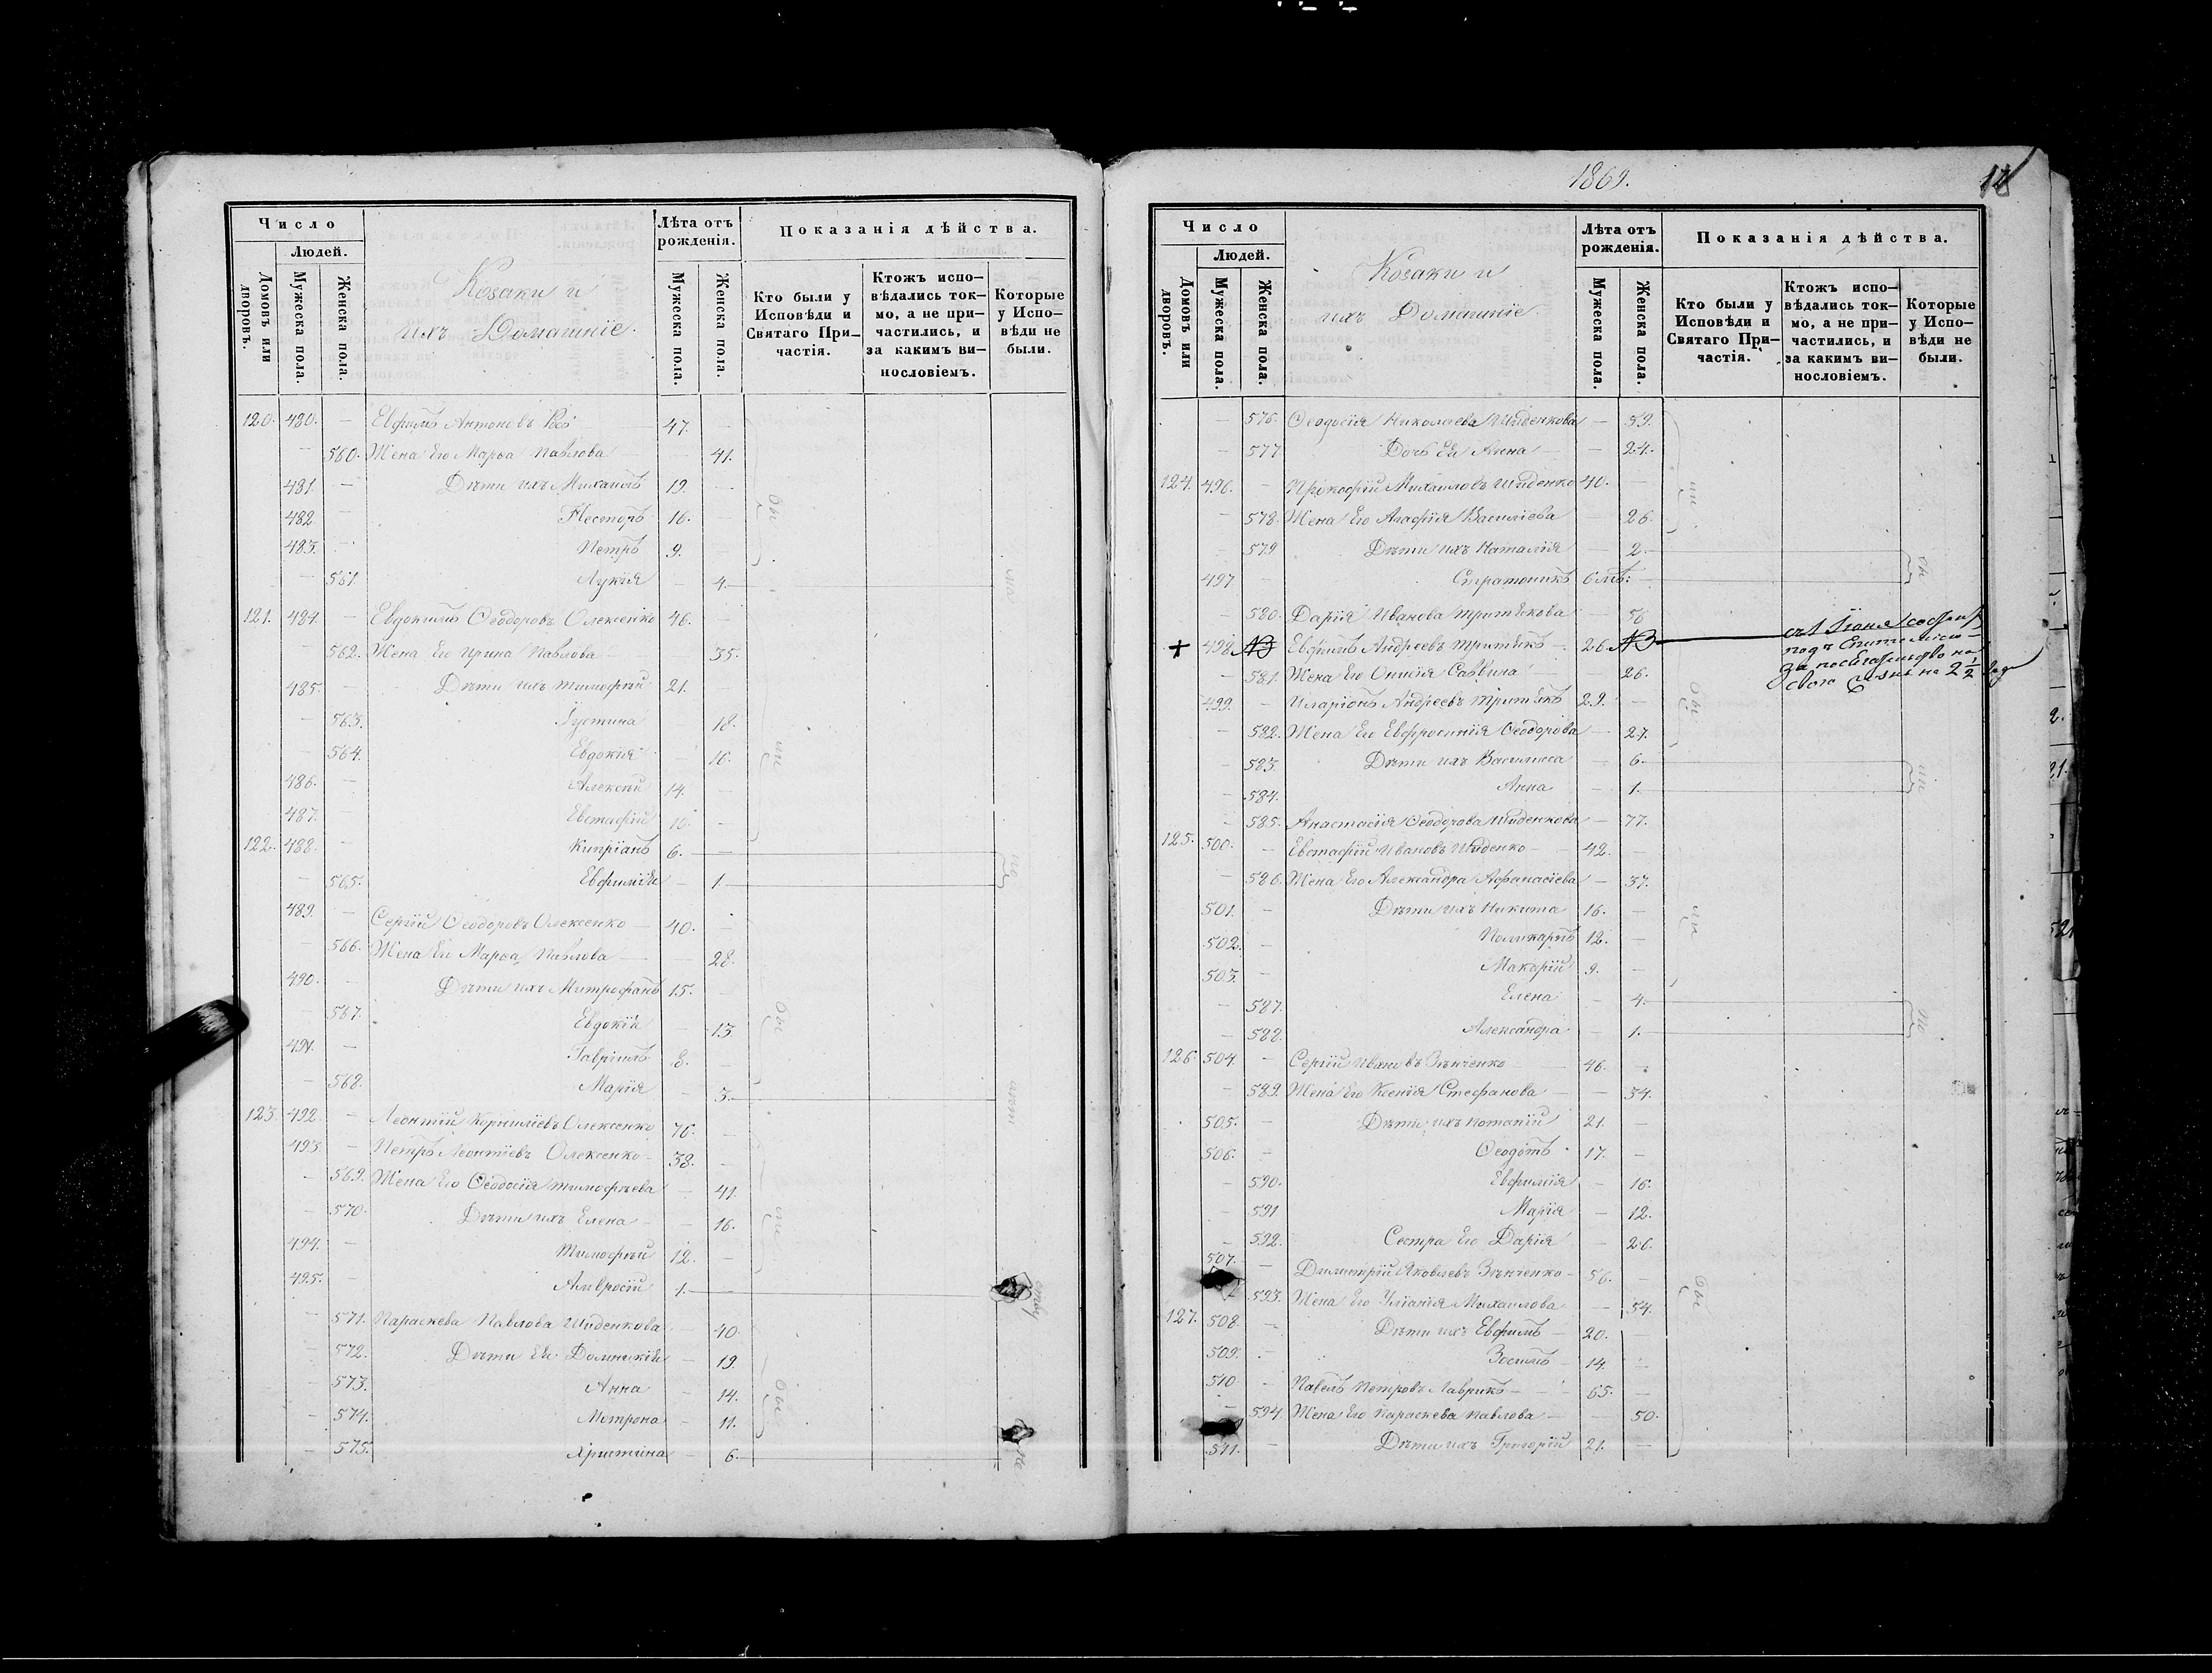 Число
Людей.
Домовъ или дворовъ.
Мужеска пола.
Женска пола.
Козаки и
ихъ Домашніе.
Лѣта отъ рожденія.
Мужеска пола.
Женска пола.
Показанія дѣйства.
Кто были у Исповѣди и Святаго Причастія.
Ктожъ исповѣдались токмо, а не причастились, и за какимъ винословіемъ.
Которые у Исповѣди не были.
120. 480. — Евфимъ Антоновъ 47. —
— 560. Жена Его Марѳа Павлова — 41.
481. — Дѣти ихъ Михаилъ 19. —
482 — Несторъ 16.
483. — Петръ 9. —
— 561 Лукія — 4.
121. 484. — Евдокимъ Ѳеодоровъ Олексенко 46. —
— 562. Жена Его Ирина Павлова — 35.
485. — Дѣти ихъ Тимофей 21. —
— 563. Іустина 18.
— 564. Евдокія — 16.
486. — Алексѣй 14. —
487. — Евстафій 10. —
122. 488. — Кипріанъ 6. —
— 565. Евфимія — 1.
489. — Сергій Ѳеодоровъ Олексенко — 40. —
— 566. Жена Его Марѳа Павлова — 28.
490. — Дѣти ихъ Митрофанъ 15. —
— 567. Евдокія — 13
491. — Гавріилъ 8. —
— 568. Марія — 3.
123. 492. — Леонтій Корниліевъ Олексенко 76. —
493. — Петръ Леонтіевъ Олексенко 38. —
— 569. Жена Его Ѳеодосія Тимофѣева — 41.
— 570. Дѣти ихъ Елена — 16.
494. — Тимофѣй 12. —
495. — Амвросій 1. —
— 571. Параскева Павлова Шиденкова — 40.
— 572. Дѣти Ея Домникія — 19.
— 573. Анна — 14.
— 574. Матрона — 11.
— 575. Христина — 6.
1869.
Число
Людей.
Домовъ или дворовъ.
Мужеска пола.
Женска пола.
Козаки и
ихъ Домашніе.
Лѣта отъ рожденія.
Мужеска пола.
Женска пола.
Показанія дѣйства.
Кто были у Исповѣди и Святаго Причастія.
Ктожъ исповѣдались токмо, а не причастились, и за какимъ винословіемъ.
Которые у Исповѣди не были.
— 576. Ѳеодосія Николаева Шиденкова — 59.
— 577 Дочь Ея Анна — 24.
124. 496. — Прокофій Михаиловъ Шиденко 40. —
— 578. Жена Его Агафія Василіева — 26.
— 579 Дѣти ихъ Наталія — 2.
497 — Стратоникъ 6 мѣ: —
— 580. Дарія Иванова Тритѣкова — 56
+ 498. Евфимъ Андреевъ Тритѣкъ — 26.
подъ Епитеміею
за посягательство на
свою жизнь на 2 1/2 года
— 581. Жена Его Онисія Саввина — 26.
499. — Иларіонъ Андреевъ Тритѣкъ 29. —
— 582. Жена Его Евфросинія Ѳеодорова — 27.
— 583 Дѣти ихъ Василисса — 6.
— 584. Анна — 1.
— 585. Анастасія Ѳеодорова Шиденкова — 77.
125. 500. — Евстафій Ивановъ Шиденко — 42. —
— 586. Жена Его Александра Аѳанасіева — 37.
501. — Дѣти ихъ Никита 16. —
502. — Поликарпъ 12. —
503. — Макарій 9. —
— 587. Елена — 4.
— 588. Александра — 1.
126. 504. — Сергій Ивановъ Зѣнченко 46. —
— 589. Жена Его Ксенія Стефанова — 34.
505. — Дѣти ихъ Потапій 21. —
506. — Ѳеодотъ 17. —
— 590. Евфимія — 16.
— 591 Марія — 12.
— 592. Сестра Его Дарія — 26.
507. — Димитрій Яковлевъ Зѣнченко 56. —
— 593. Жена Его Уліанія Михаилова — 54.
127. 508. — Дѣти ихъ Евфимъ — 20. —
509. — Зосимъ — 14. —
510 — Павелъ Петровъ Лаврикъ — 65. —
— 594 Жена Его Параскева Павлова — 50.
511. — Дѣти ихъ Григорій 21. —